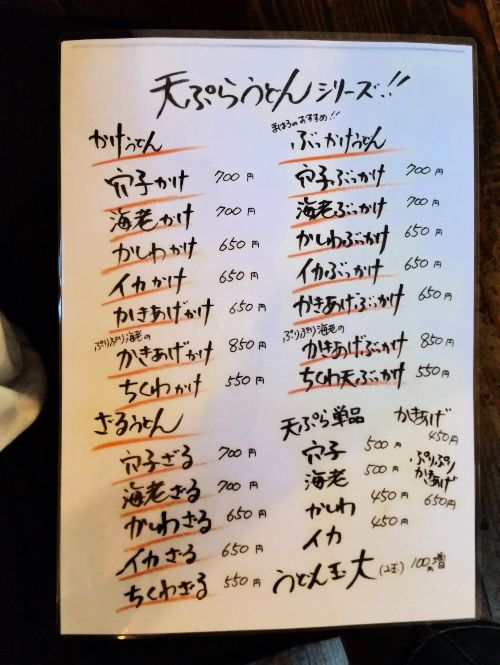 天ぷらうどんシリーズ!!
かけうどん
穴子かけ 700円
海老かけ 700円
かしわかけ 650円
イカかけ 650円
かきあげかけ 650円
ぷりぷり海老の
かきあげかけ 850円
ちくわかけ 550円
ざるうどん
穴子ざる 700円
海老ざる 700円
かしわざる 650円
イカざる 650円
ちくわざる 550円
のおすすめ!!
ぶっかけうどん
穴子ぶっかけ 700円
海老ぶっかけ 700円
かしわぶっかけ 650円
イカぶっかけ 650円
かきあげぶっかけ 650円
ぷりぷり海老の
かきあげぶっかけ 850円
ちくわ天ぶっかけ 550円
天ぷら単品
穴子 500円
海老 500円
かしわ 450円
イカ 450円
かきあげ
450円
ぷりぷり
かきあげ
650円
うどん玉大(2玉) 100円増